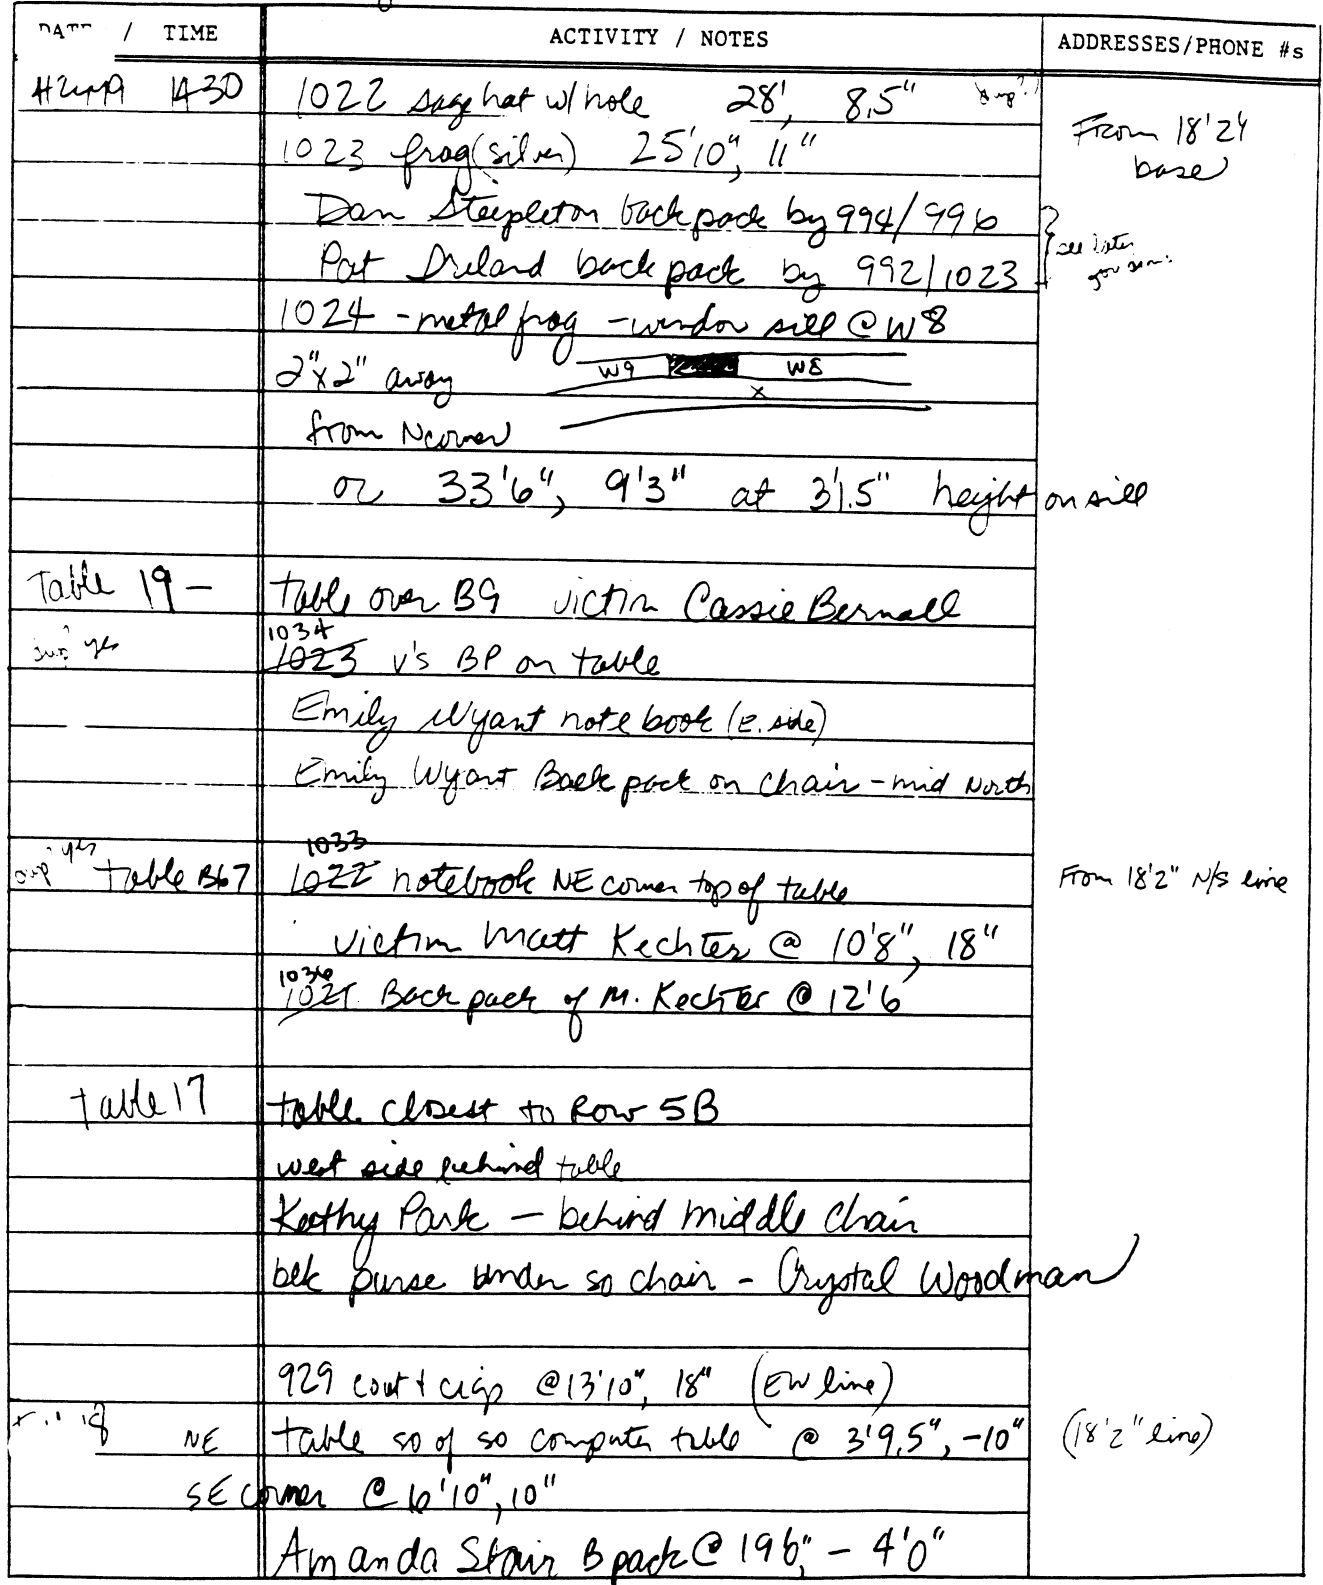 DATE / TIME ACTIVITY / NOTES ADDRESSES/PHONE #s
1430 1022 sage hat w/ hole 28', 8.5"
From 18'2"
base
1023 frog (silver) 25'10", 11"
Dan Steepleton backpack by 994/996
see later
Pat Ireland backpack by 992/1023
1024 - metal frog - window sill @ W8
2"x2" away W9 W8
x
from N corner
or 33'6", 9'3" at 3'1.5" height on sill
Table 19 - table over B9 victim Cassie Bernall
1034
yes 1023 v's BP on table
Emily Wyant notebook (E. side)
Emily Wyant Backpack on chair - mid North
yes 1033
table B67 1022 notebook NE corner top of table From 18'2" N/S line
victim Matt Kechter @ 10'8", 18"
1036
1021 Backpack of M. Kechter @ 12'6
Table 17 table closest to Row 5B
west side behind table
Kathy Park - behind middle chair
blk purse under so chair - Crystal Woodman
929 coat + cigs @ 13'10", 18" (EW line)
NE table so of so computer table @ 3'9.5", -10" (18'2" line)
SE corner @ 6'10", 10"
Amanda Stair Bpack @ 19'6", - 4'0"